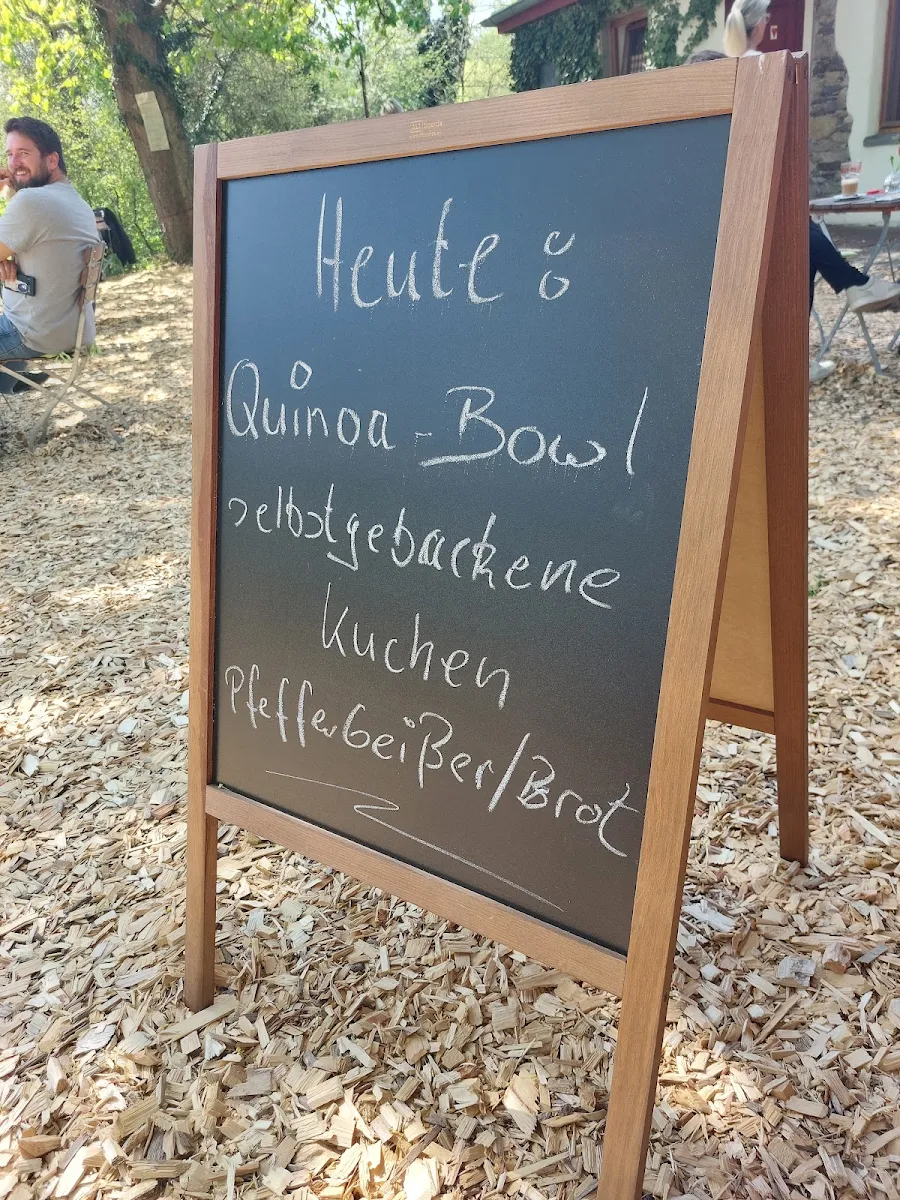 Heute :
Quinoa - Bowl
selbstgebackene
Kuchen
Pfefferbeißer/Brot